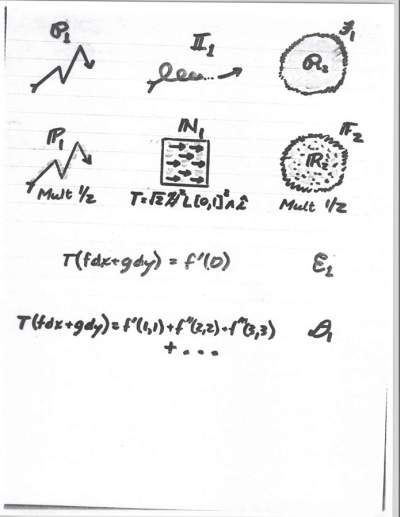 𝒫₁ 𝕀₁ ℱ₁
ℛ₁
ℙ₁ ℕ₁ 𝔽₂
ℝ₂
Mult 1/2 Mult 1/2
T(fdx+gdy) = f'(0) ℰ₁
T(fdx+gdy) = f'(1,1)+f''(2,2)+f'''(3,3) 𝒟₁
+ ...